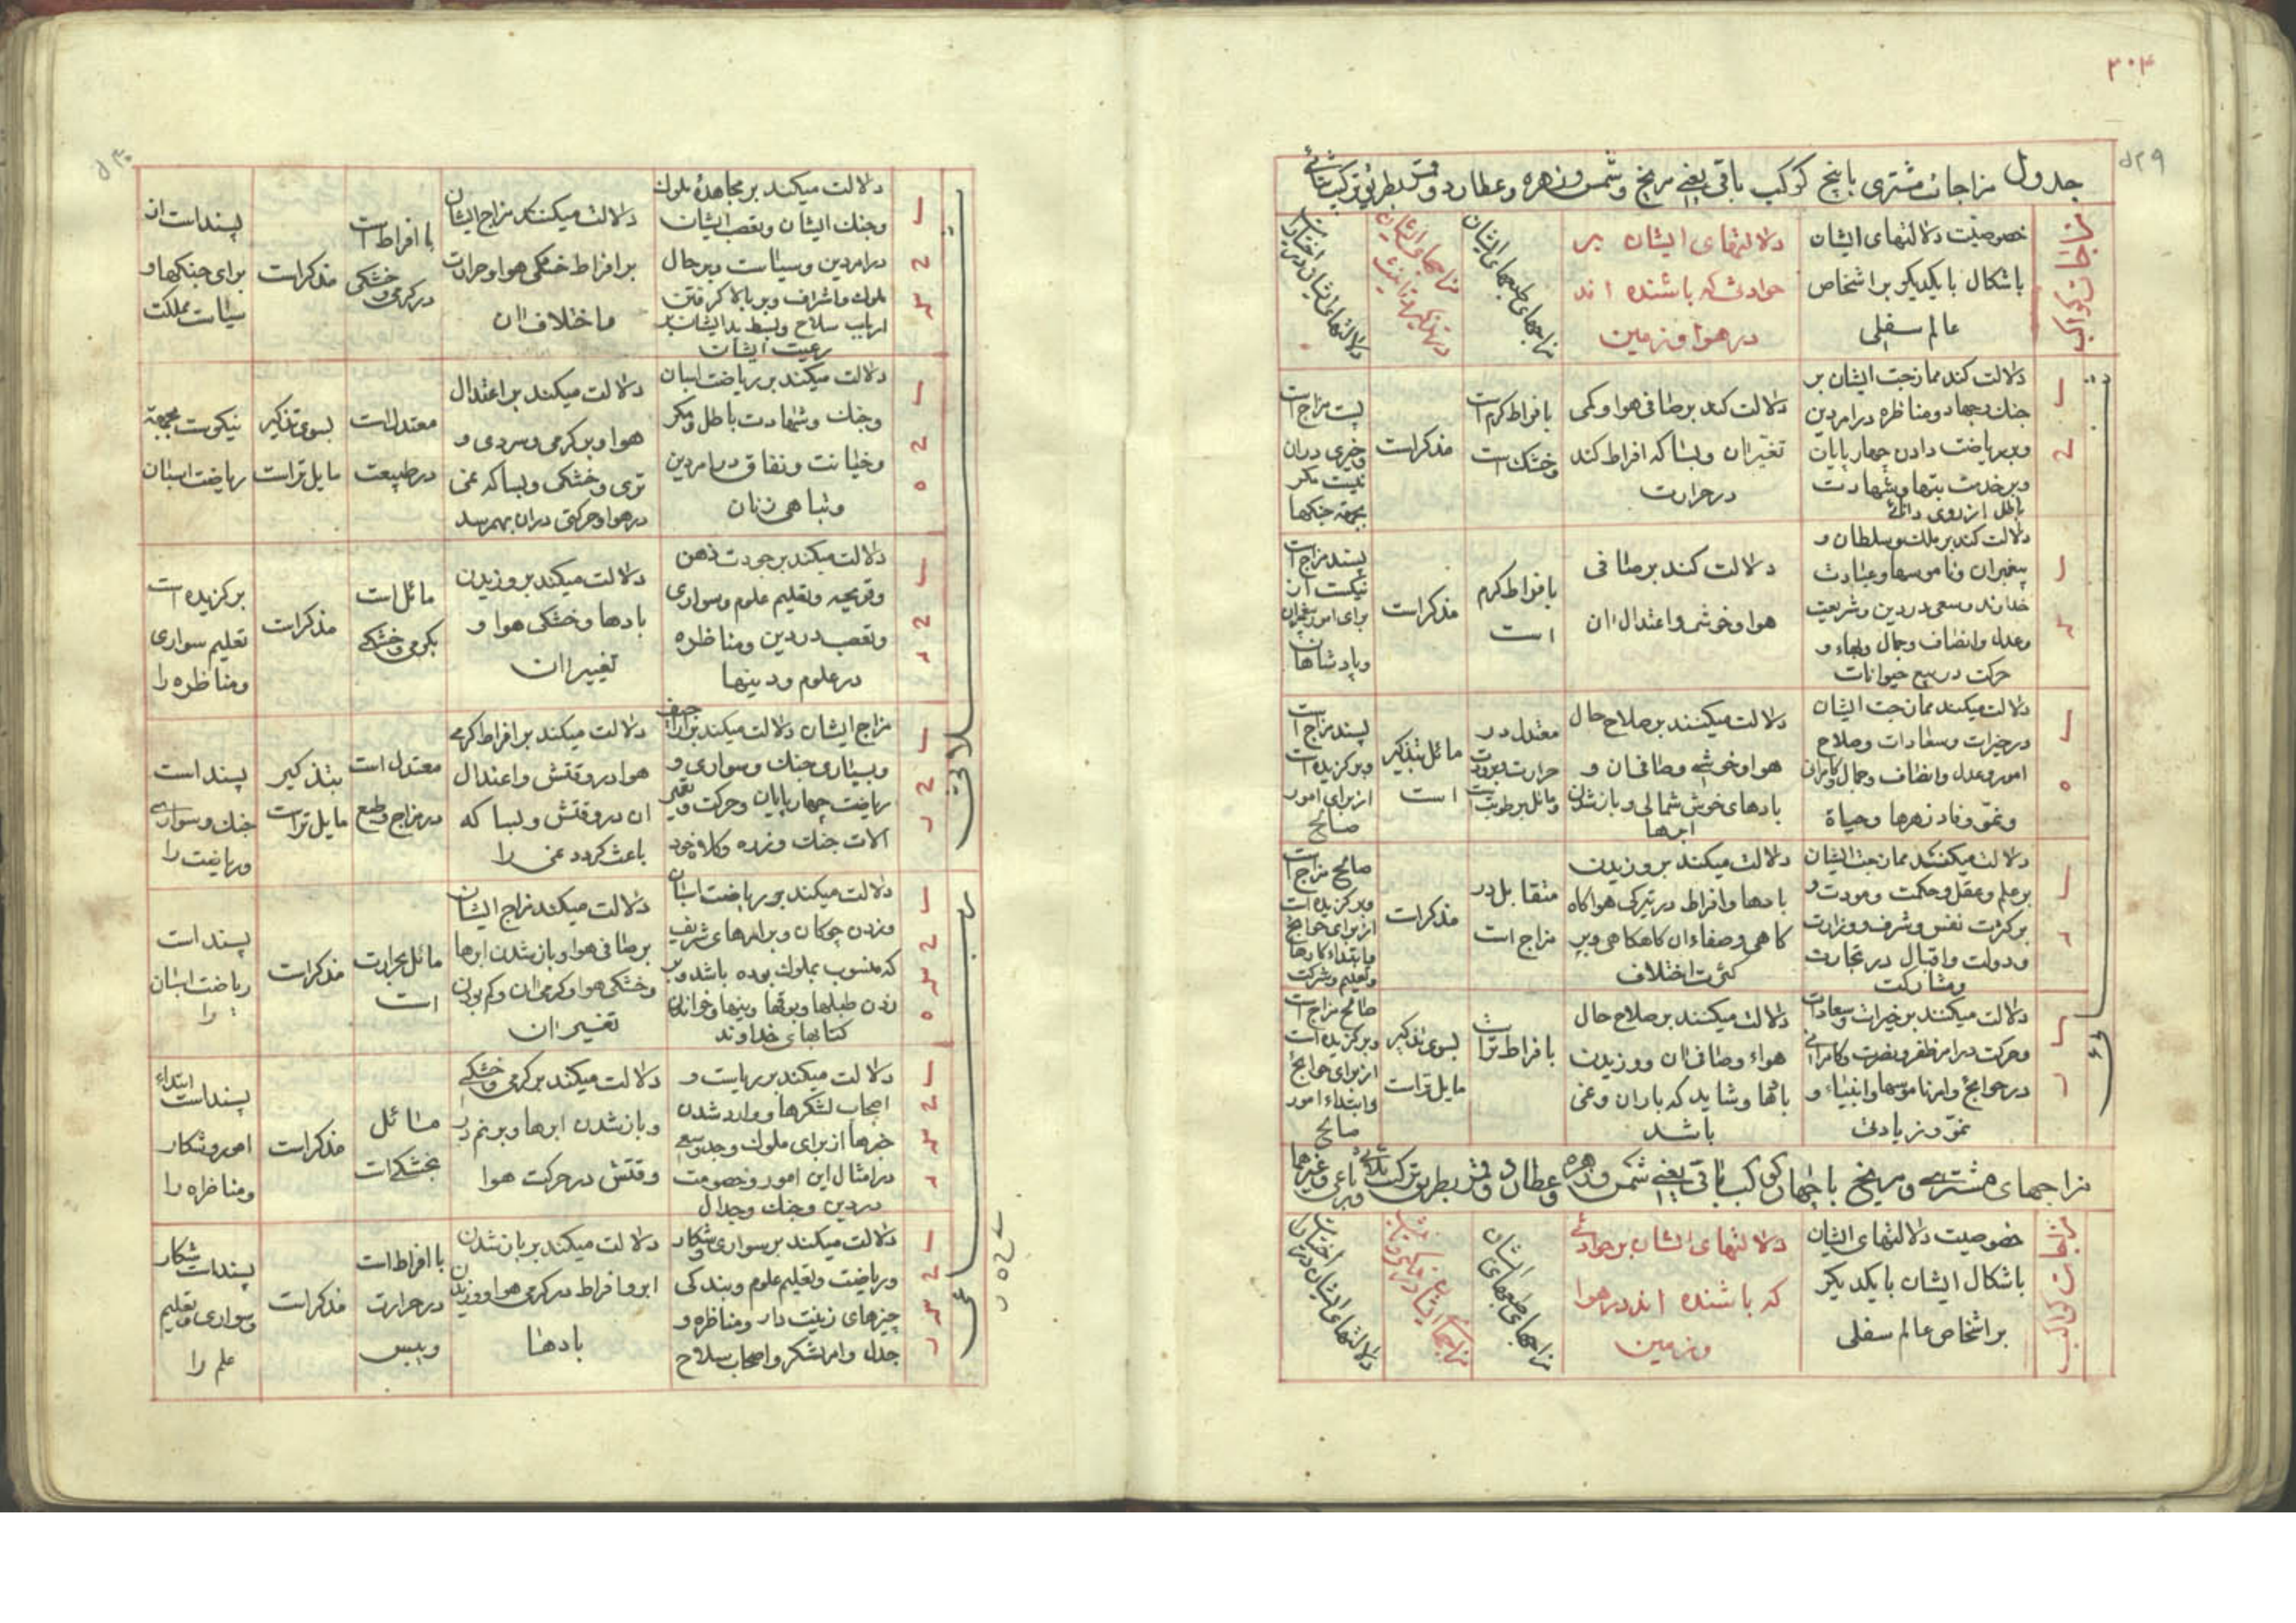 ۳۰۳
۵۲۹
جدول مزاجات مشتری با پنج کوکب باقی یعنی مریخ و شمس و زهره و عطارد و قمر بطریق ترکیب ثنائی
مزاجات کواکب
خصوصیت دلالتهای ایشان
باشکال با یکدیگر بر اشخاص
عالم سفلی
دلالتهای ایشان بر
حوادثی که باشنده اند
در هوا و زمین
مزاجهای طبعهای ایشان
دلالت کند ممازجت ایشان بر
جنك و جهاد و مناظره در امر دین
و بر ریاضت دادن چهارپایان
و بر خدمت بتها و شهادت
باطل از روی دانائی
دلالت کند بر صافی هوا و کمی
تغیر ان و بسا که افراط کند
در حرارت
بافراط کرم است
و خشك است
مذکر است
پست مزاج است
و خیری در ان
نیست مکر
بجهة جنکها
دلالت کند بر ملك و سلطان و
پیغمبران و ناموسها و عبادت
خداوند و سعی در دین و شریعت
و عدل و انصاف و جمال و بهاء و
حرکت در بیع حیوانات
دلالت کند بر صافی
هوا و خوشی و اعتدال ان
بافراط کرم
است
مذکر است
پسند مزاج است
نیکست از
برای امور پیغمبران
و پادشاهان
دلالت میکنند ممازجت ایشان
در خیرات و سعادات و صلاح
امور و عدل و انصاف و جمال و کامرانی
و نمو و فاد زهرها و حیاة
دلالت میکنند بر صلاح حال
هوا و خوشی و صافی ان و
بادهای خوش شمالی و باز شدن
ابرها
معتدل در
حرارت و برودت
و مائل برطوبت است
مائل بتذکیر
است
پسند مزاج است
و برکزیده است
از برای امور
صالح
دلالت میکنند ممازجت ایشان
بر علم و عقل و حکمت و مودت و
بر کثرت نفس و شرف و وزارت
و دولت و اقبال در تجارت
و مشارکت
دلالت میکند بر وزیدن
بادها و افراط در تیرکی هوا کاه
کاهی و صفاء ان کاهکاهی و بر
کثرت اختلاف
متقابل در
مزاج است
مذکر است
صالح مزاج است
و برکزیده است
از برای حوایج
و ابتداء کارها
و تعلیم و شرکت
دلالت میکنند بر خیرات و سعادات
و حرکت در امر ظفر و نصرت و کامرانی
در حوایج و امر ناموسها و انبیاء و
نمو و زیادتی
دلالت میکنند بر صلاح حال
هواء و صافی ان و وزیدن
بادها و شاید که باران و غمی
باشد
بافراط تر است
بسوی تذکیر
مایل تر است
صالح مزاج است
و برکزیده است
از برای حوایج
و ابتداء امور
صالح
مزاجهای مشتری و مریخ با چهار کوکب باقی یعنی شمس و زهره و عطارد و قمر بطریق ترکیب ثلاثی و رباعی و غیرهما
مزاجات کواکب
خصوصیت دلالتهای ایشان
باشکال ایشان با یکدیکر
بر اشخاص عالم سفلی
دلالتهای ایشان بر حوادثی
که باشنده اند در هوا
و زمین
مزاجهای طبعهای ایشان
۵۳۰
دلالت میکند بر مجاهدهٔ ملوك
و جنك ایشان و تعصب ایشان
در امر دین و سیاست و بر حال
ملوك و اشراف و بر بالا کرفتن
ارباب سلاح و بسط ید ایشان بر
رعیت ایشان
دلالت میکند مزاج ایشان
بر افراط خشکی هوا و حرارت
و اختلاف ان
با افراط است
در کرمی و خشکی
مذکر است
پسند است ان
برای جنکها و
سیاست مملکت
دلالت میکند بر ریاضت اسبان
و جنك و شهادت باطل و مکر
و خیانت و نفاق در امر دین
و تباهی زنان
دلالت میکند بر اعتدال
هوا و بر کرمی و سردی و
تری و خشکی و بسا که غمی
در هوا و حرکتی در ان بهم رسد
معتدل است
در طبیعت
بسوی تذکیر
مایل تر است
نیکوست بجهة
ریاضت اسبان
دلالت میکند بر جودت ذهن
و قریحه و تعلیم علوم و سواری
و تعصب در دین و مناظره
در علوم و دینها
دلالت میکند بر وزیدن
بادها و خشکی هوا و
تغییر ان
مائل است
بکرمی و خشکی
مذکر است
برکزیده است
تعلیم سواری
و مناظره را
مزاج ایشان دلالت میکند بر اراجیف
و بسیاری جنك و سواری و
ریاضت چهارپایان و حرکت و تغیر
الات جنك و زره و کلاه خود
دلالت میکند بر افراط کرمی
هوا در وقتش و اعتدال
ان در وقتش و بسا که
باعث کردد غمی را
معتدل است
در مزاج و طبع
بتذکیر
مایل تر است
پسند است
جنك و سواری
و ریاضت را
دلالت میکند بر ریاضت اسبان
و زدن چوکان و بر امرهای شریف
که منسوب بملوك بوده باشد و بر
زدن طبلها و بوقها و نیها و خواندن
کتابهای خداوند
دلالت میکند مزاج ایشان
بر صافی هوا و باز شدن ابرها
و خشکی هوا و کرمی ان و کم بودن
تغییر ان
مائل بحرارت
است
مذکر است
پسند است
ریاضت اسبان
را
دلالت میکند بر ریاست و
اصحاب لشکرها و وارد شدن
خبرها از برای ملوك و جد و سعی
در امثال این امور و خصومت
در دین و جنك و جدال
دلالت میکند بر کرمی و خشکی
و باز شدن ابرها و بر نم در
وقتش در حرکت هوا
مائل
بخشکی است
مذکر است
پسند است ابتداء
امور و شکار
و مناظره را
دلالت میکند بر سواری و شکار
و ریاضت و تعلیم علوم و بندکی
چیزهای زینت دار و مناظره و
جدل و امر لشکر و اصحاب سلاح
دلالت میکند بر باز شدن
ابر و افراط در کرمی هوا و وزیدن
بادها
با افراط است
در حرارت
و یبس
مذکر است
پسند است شکار
و سواری و تعلیم
علم را